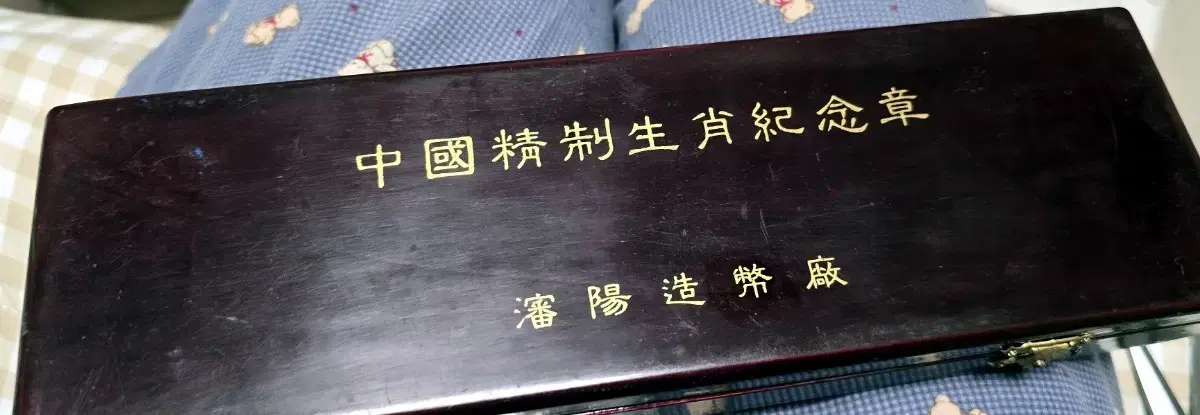 中國精制生肖紀念章
瀋陽造幣廠